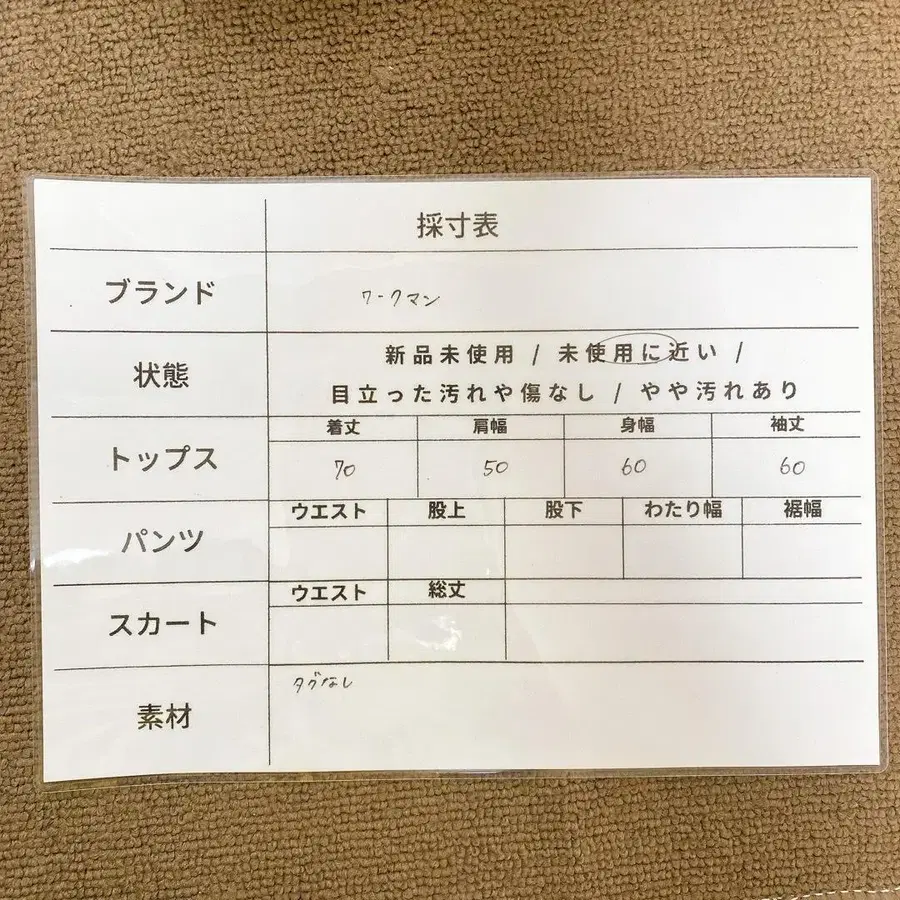 採寸表
ブランド
ワークマン
状態
新品未使用 / 未使用に近い /
目立った汚れや傷なし / やや汚れあり
トップス
着丈 肩幅 身幅 袖丈
70 50 60 60
パンツ
ウエスト 股上 股下 わたり幅 裾幅
スカート
ウエスト 総丈
素材
タグなし